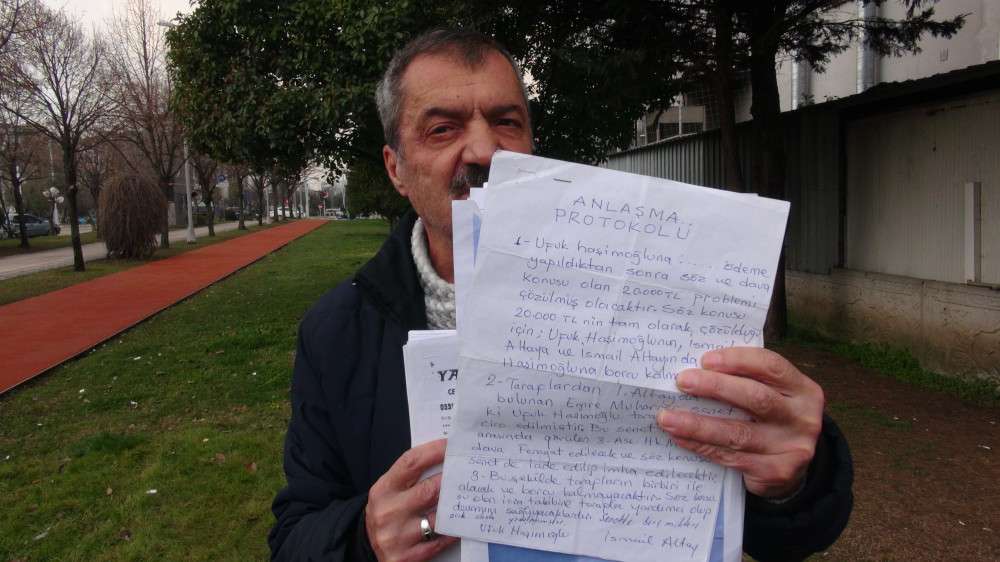 ANLAŞMA
PROTOKOLÜ
1- Ufuk haşimoğluna ..... ödeme
yapıldıktan sonra söz ve dava
konusu olan 20000TL problemi
çözülmüş olacaktır. Söz konusu
20.000 TL'nin tam olarak çözüldüğü
için; Ufuk Haşimoğlunun, İsmail
Altaya ve İsmail Altayında
Haşimoğluna borcu
2- Taraflardan İ. Altayda
bulunan Emre senet
ki Ufuk Haşimoğlu
ciro edilmiştir. Bu senet
arasında görülen 3. Asl. H.
dava feragat edilecek ve söz
senet de iade edilip imha edilecektir
3- Bu şekilde tarafların birbiri ile
alacak ve borcu kalmayacaktır. Söz
olan icra takibine taraflar yardımcı olup
devamını sağlayacaklardır.
Ufuk Haşimoğlu İsmail Altay
YA
CE